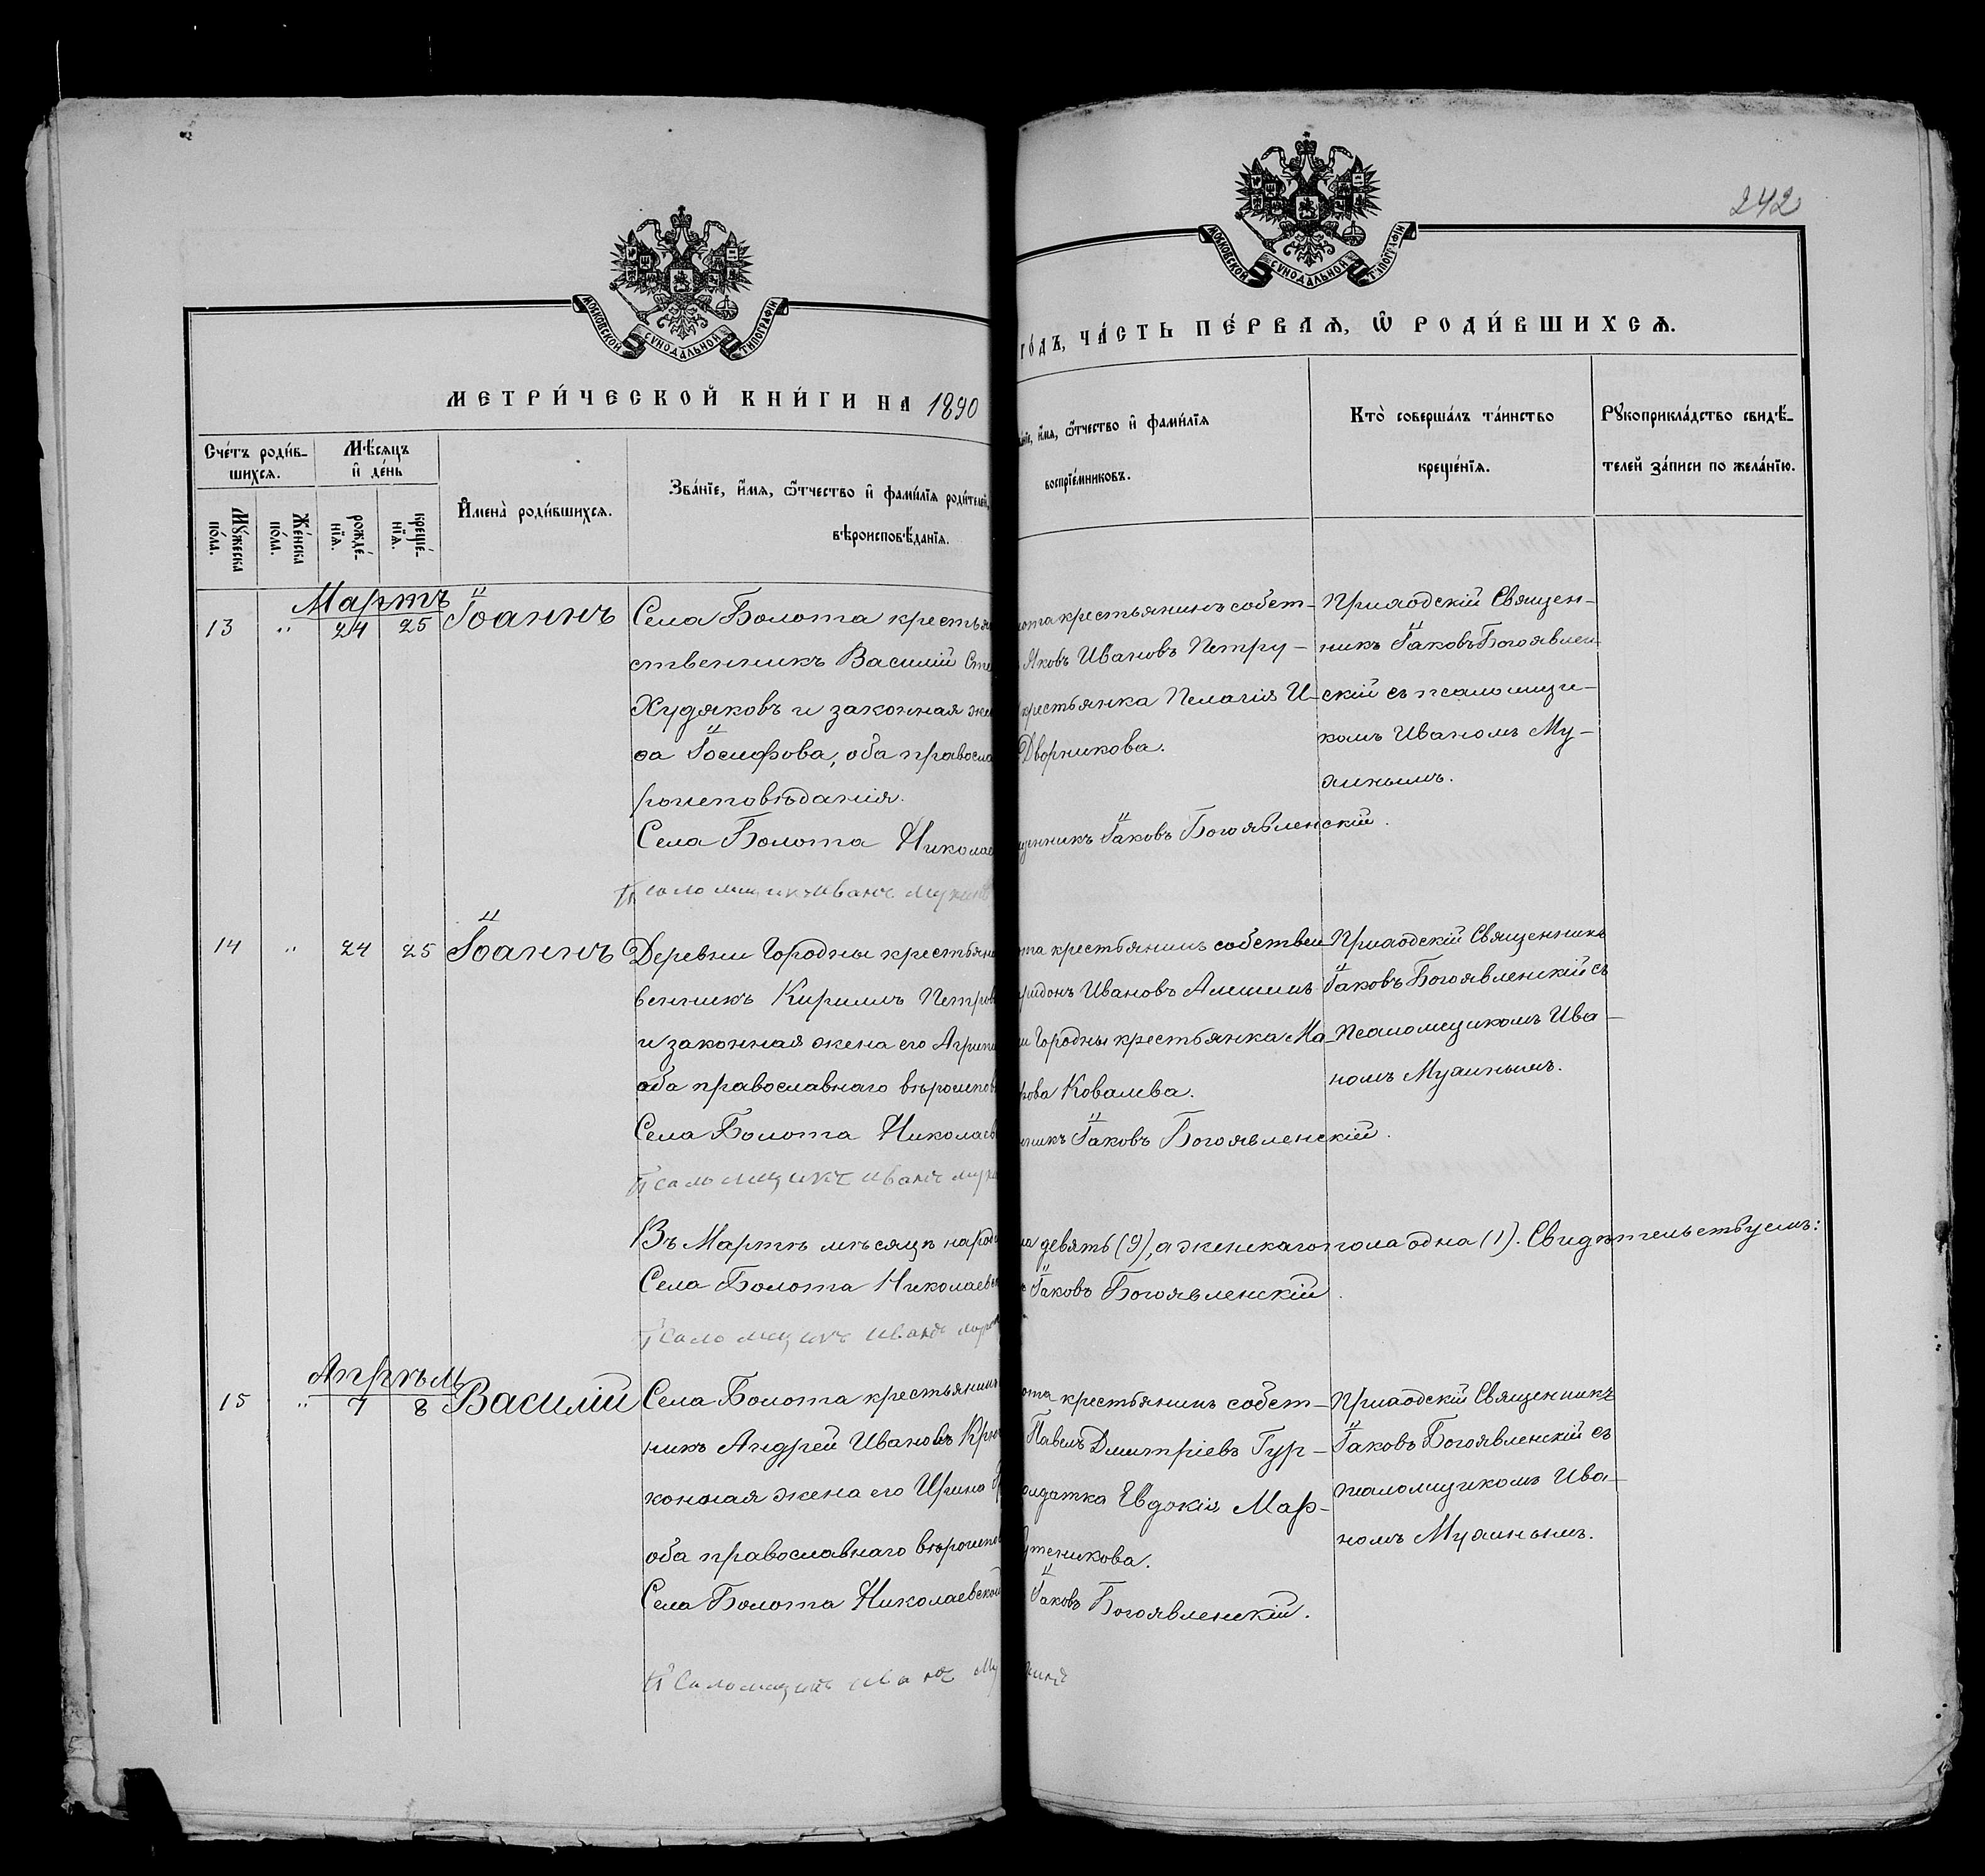 242
МОСКОВСКОЙ СУНОДАЛЬНОЙ ТИПОГРАФІИ
МОСКОВСКОЙ СУНОДАЛЬНОЙ ТИПОГРАФІИ
МЕТРИ́ЧЕСКОЙ КНИ́ГИ НА 1890
ГО́ДЪ, ЧА́СТЬ ПЕ́РВАѦ, Ѡ҆ РОДИ́ВШИХСѦ.
Сче́тъ роди́в-
шихсѧ.
Мѣ́сѧцъ
и҆ де́нь
Мꙋ́жеска
по́ла.
Же́нска
по́ла.
рожде́-
нїѧ.
креще́-
нїѧ.
И҆мена̀ роди́вшихсѧ.
Зва́нїе, и҆́мѧ, ѻ҆́тчество и҆ фами́лїѧ роди́телей,
вѣроисповѣ́данїѧ.
и҆́мѧ, ѻ҆́тчество и҆ фами́лїѧ
воспрїе́мниковъ.
Кто̀ соверша́лъ та́инство
креще́нїѧ.
Рꙋкоприкла́дство свидѣ́-
телей за́писи по жела́нїю.
Мартъ
13 " 24 25 Іоаннъ
Села Болота крестья
ственникъ Василій Сте
Худяковъ и законная же
Іосифова, оба правосла
роисповѣданія.
Села Болота Николае
Псаломщикъ Иванъ
крестьянинъ собст-
Яковъ Ивановъ Петру-
крестьянка Пелагія И-
Дворникова.
Іаковъ Богоявленскій.
Приходскій Священ-
никъ Іаковъ Богоявлен
скій съ псаломщи-
комъ Иваномъ Му-
хинымъ.
14 " 24 25 Іоаннъ
Деревни Городны крестьяни
венникъ Кирилъ Петров
и законная жена его Агрипи
оба православнаго вѣроиспов
Села Болота Николаев
Псаломщикъ Иванъ
крестьянинъ собствен-
Ивановъ Алешинъ
Городны крестьянка Ма-
Ковалева.
Іаковъ Богоявленскій.
Приходскій Священникъ
Іаковъ Богоявленскій съ
Псаломщикомъ Ива-
номъ Мухинымъ.
Въ Мартѣ мѣсяцѣ народи
девять (9), а женскаго пола одна (1). Свидѣтельствуемъ:
Села Болота Николаевс
Іаковъ Богоявленскій.
Псаломщикъ Иванъ
Апрѣль
15 " 7 8 Василій
Села Болота крестьянинъ
никъ Андрей Ивановъ Крю
конная жена его Ирина
оба православнаго вѣроиспов
Села Болота Николаевской
Псаломщикъ Иванъ Му
хинъ
крестьянинъ собст-
Павелъ Дмитріевъ Гур-
солдатка Евдокія Мар-
Іаковъ Богоявленскій.
Приходскій Священникъ
Іаковъ Богоявленскій съ
псаломщикомъ Ива-
номъ Мухинымъ.